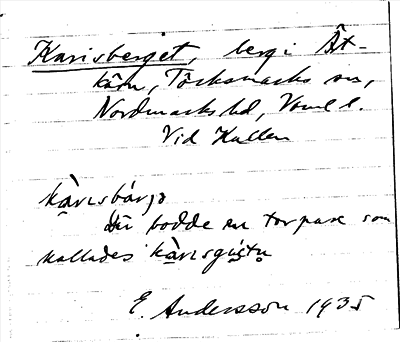 Karisberget, berg i Öst-
kärn, Töcksmarks sn,
Nordmarks hd, Värml l.
Vid Kallen
kàrɩsbárjə
Där bodde en torpare som
kallades kàrɩsgústu
E. Andersson 1935